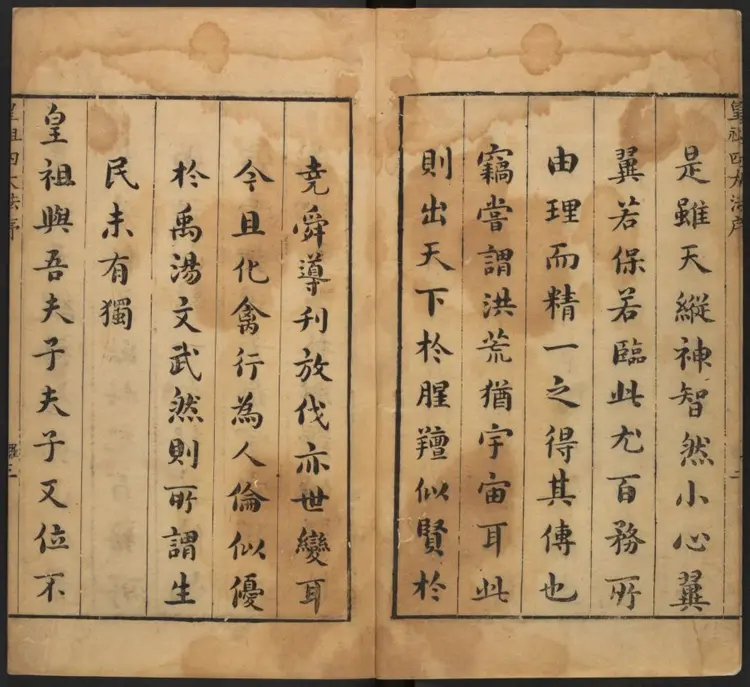 皇祖四大法序
是雖天縱神智然小心翼
翼若保若臨此尤百務所
由理而精一之得其傳也
竊嘗謂洪荒猶宇宙耳此
則出天下於腥羶似賢於
堯舜導刊放伐亦世變耳
今且化禽行為人倫似優
於禹湯文武然則所謂生
民未有獨
皇祖與吾夫子夫子又位不
皇祖四大法序